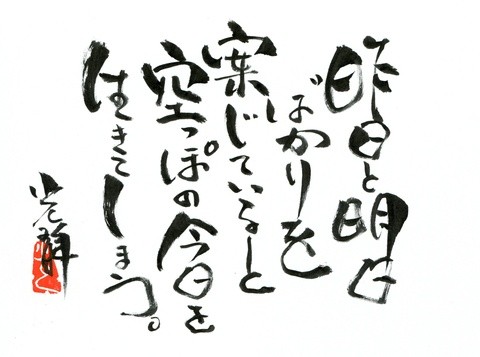 昨日と明日
ばかりを
案じていると
空っぽの今日を
生きてしまう。